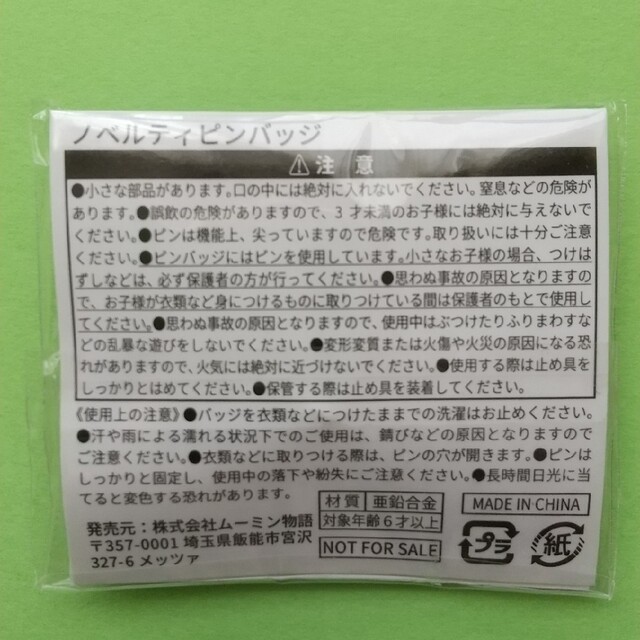 ノベルティピンバッジ
⚠注 意
●小さな部品があります。口の中には絶対に入れないでください。窒息などの危険が
あります。●誤飲の危険がありますので、3才未満のお子様には絶対に与えないで
ください。●ピンは機能上、尖っていますので危険です。取り扱いには十分ご注意
ください。●ピンバッジにはピンを使用しています。小さなお子様の場合、つけは
ずしなどは、必ず保護者の方が行ってください。●思わぬ事故の原因となりますの
で、お子様が衣類など身につけるものに取りつけている間は保護者のもとで使用し
てください。●思わぬ事故の原因となりますので、使用中はぶつけたりふりまわすな
どの乱暴な遊びをしないでください。●変形変質または火傷や火災の原因になる恐
れがありますので、火気には絶対に近づけないでください。●使用する際は止め具を
しっかりとはめてください。●保管する際は止め具を装着してください。
《使用上の注意》●バッジを衣類などにつけたままでの洗濯はお止めください。
●汗や雨による濡れる状況下でのご使用は、錆びなどの原因となりますので
ご注意ください。●衣類などに取りつける際は、ピンの穴が開きます。●ピンは
しっかりと固定し、使用中の落下や紛失にご注意ください。●長時間日光に当
てると変色する恐れがあります。
材質 亜鉛合金
対象年齢6才以上
MADE IN CHINA
発売元：株式会社ムーミン物語
〒357-0001 埼玉県飯能市宮沢
327-6 メッツァ
NOT FOR SALE
プラ
紙